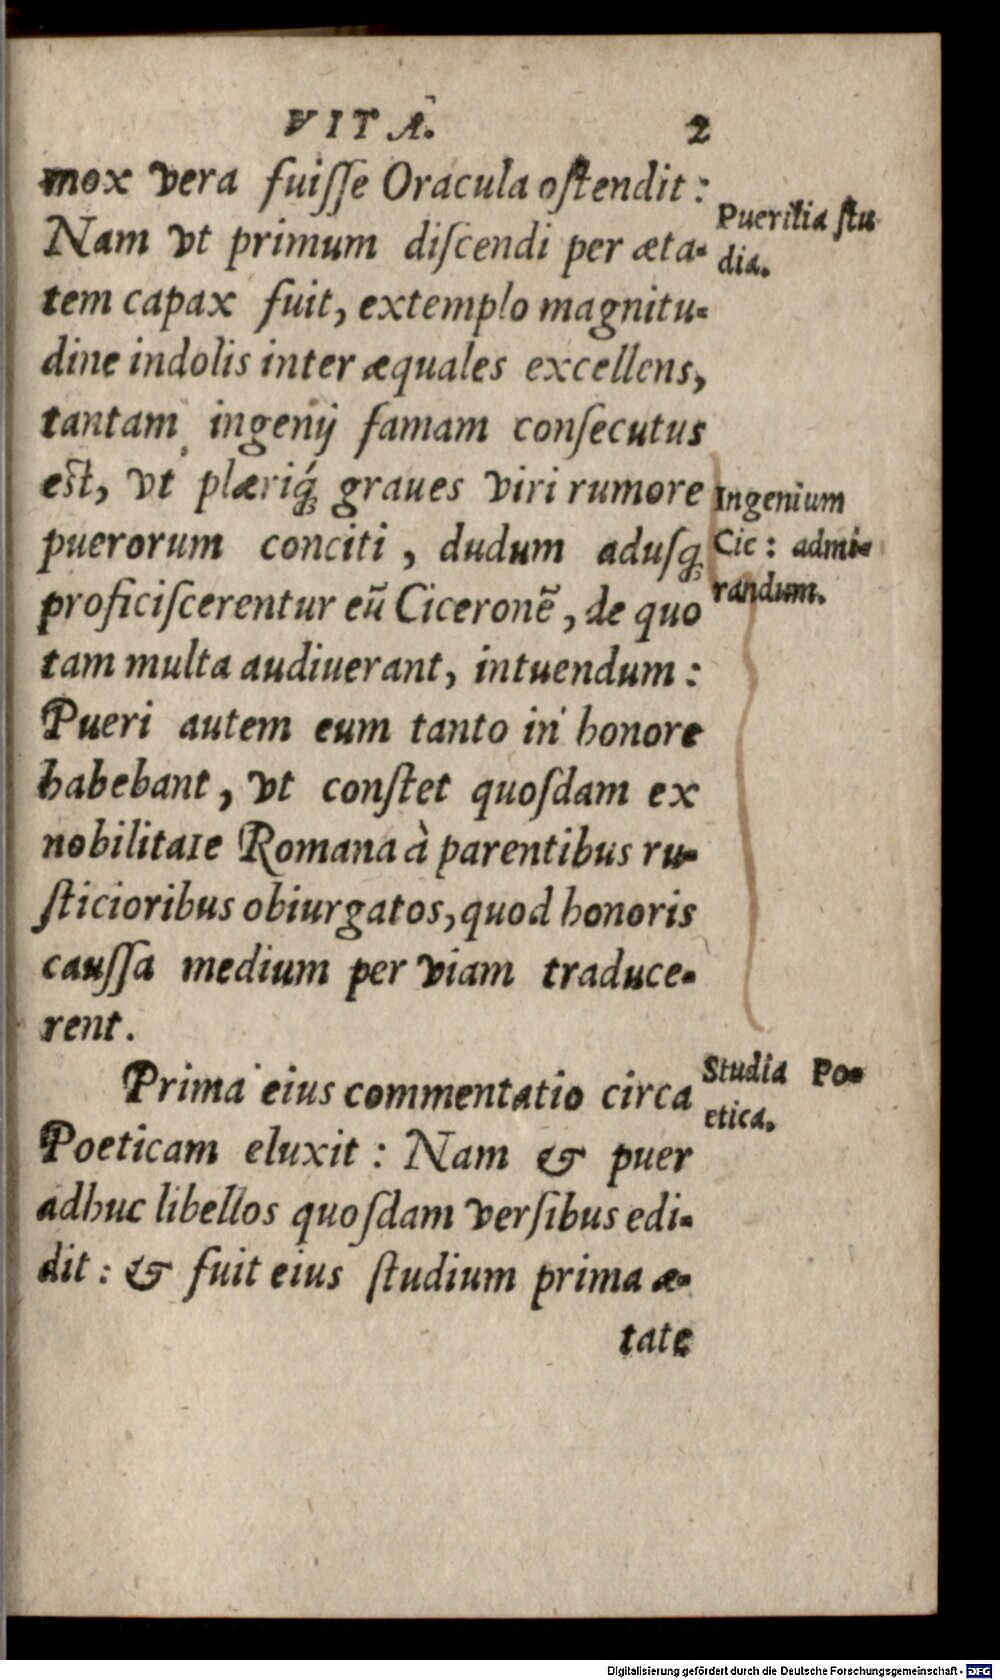 VITÂ. 2
mox vera fuiſſe Oracula oſtendit:
Nam vt primum diſcendi per æta-
tem capax fuit, extemplo magnitu-
dine indolis inter æquales excellens,
tantam ingenij famam conſecutus
est, vt plæriq́; graues viri rumore
puerorum conciti, dudum aduſq;
proficiſcerentur eū Ciceronē, de quo
tam multa audiuerant, intuendum:
Pueri autem eum tanto in honore
habebant, vt conſtet quoſdam ex
nobilitaıe Romana à parentibus ru-
ſticioribus obiurgatos, quod honoris
cauſſa medium per viam traduce-
rent.
Prima eius commentatio circa
Poeticam eluxit: Nam & puer
adhuc libellos quoſdam verſibus edi-
dit: & fuit eius ſtudium prima æ-
tate
Puerilia ſtu
dia.
Ingenium
Cic: admi-
randum.
Studia Po-
etica.
Digitalisierung gefördert durch die Deutsche Forschungsgemeinschaft - DFG